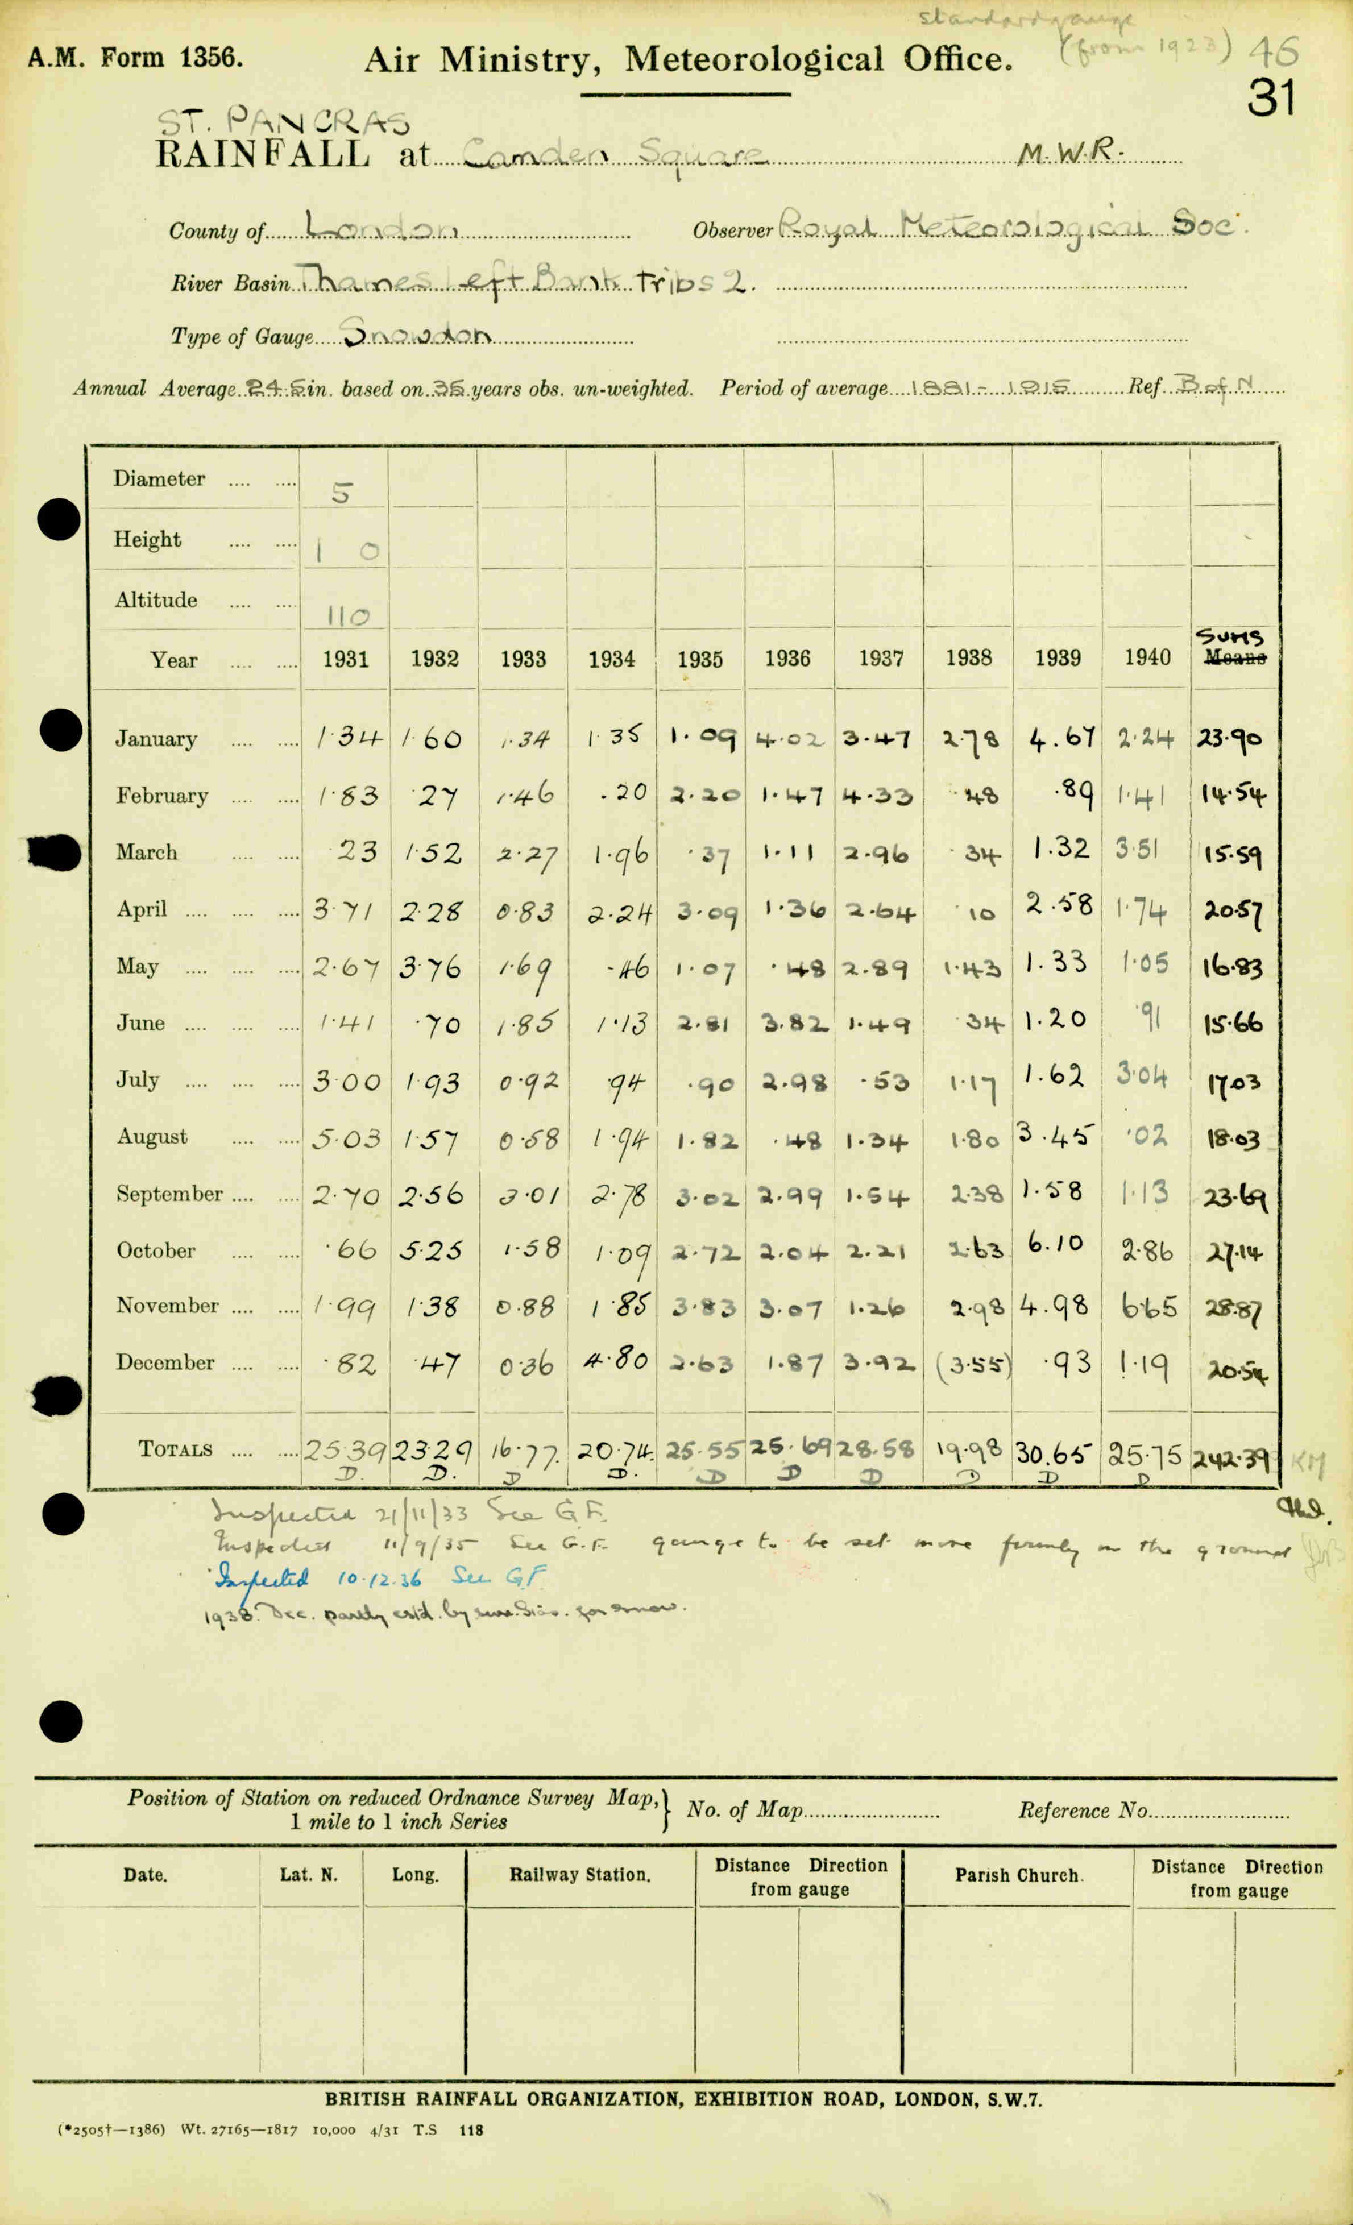 standard gauge
A.M. Form 1356. Air Ministry, Meteorological Office. (from 1923) 46
31
ST. PANCRAS
RAINFALL at Camden Square M.W.R.
County of London Observer Royal Meteorological Soc.
River Basin Thames Left Bank Tribs 2.
Type of Gauge Snowdon
Annual Average 24.5 in. based on 35 years obs. un-weighted. Period of average 1881 - 1915 Ref. B of N
Diameter 5
Height 1 0
Altitude 110
Sums
Year 1931 1932 1933 1934 1935 1936 1937 1938 1939 1940 Means
January 1.34 1.60 1.34 1.35 1.09 4.02 3.47 2.78 4.67 2.24 23.90
February 1.83 .27 1.46 .20 2.20 1.47 4.33 .48 .89 1.41 14.54
March 23 1.52 2.27 1.96 .37 1.11 2.96 .34 1.32 3.51 15.59
April 3.71 2.28 0.83 2.24 3.09 1.36 2.64 .10 2.58 1.74 20.57
May 2.67 3.76 1.69 .46 1.07 .48 2.89 1.43 1.33 1.05 16.83
June 1.41 .70 1.85 1.13 2.81 3.82 1.49 .34 1.20 .91 15.66
July 3.00 1.93 0.92 .94 .90 2.98 .53 1.17 1.62 3.04 17.03
August 5.03 1.57 0.58 1.94 1.82 .48 1.34 1.80 3.45 .02 18.03
September 2.70 2.56 3.01 2.78 3.02 2.99 1.54 2.38 1.58 1.13 23.69
October .66 5.25 1.58 1.09 2.72 2.04 2.21 2.63 6.10 2.86 27.14
November 1.99 1.38 0.88 1.85 3.83 3.07 1.26 2.98 4.98 6.65 28.87
December .82 .47 0.36 4.80 2.63 1.87 3.92 (3.55) .93 1.19 20.54
TOTALS 25.39 23.29 16.77. 20.74. 25.55 25.69 28.58 19.98 30.65 25.75 242.39 KM
D. D. D D. D D D D D D
Inspected 21/11/33 See G.F.
Inspected 11/9/35 See G.F. gauge to be set more firmly in the ground
Inspected 10.12.36 See G.F
1938. Dec. partly estd. by surr. Stns. for snow.
Position of Station on reduced Ordnance Survey Map,} No. of Map Reference No.
1 mile to 1 inch Series
Date. Lat. N. Long. Railway Station. Distance Direction from gauge Parish Church. Distance Direction from gauge
BRITISH RAINFALL ORGANIZATION, EXHIBITION ROAD, LONDON, S.W.7.
(*2505†—1386) Wt. 27165—1817 10,000 4/31 T.S 118